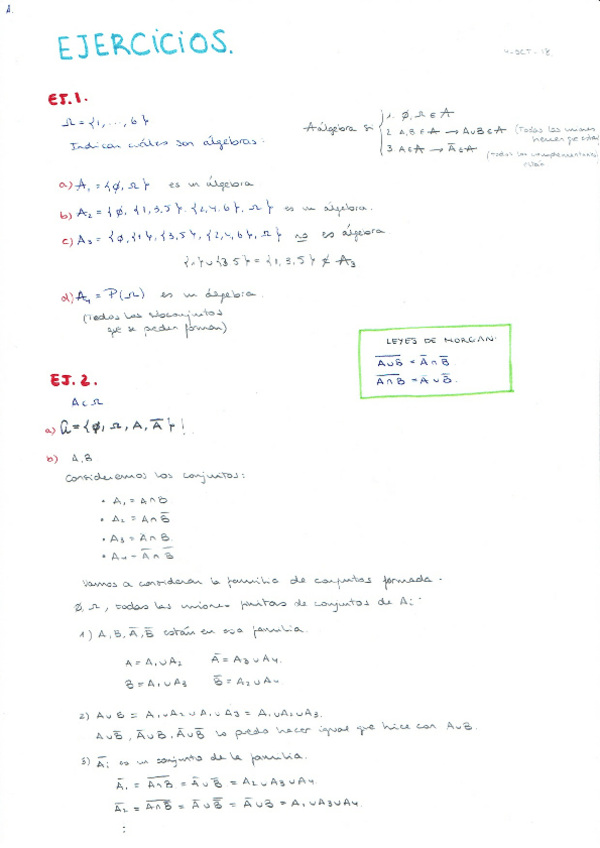 1.
EJERCICIOS.
4-OCT-18
EJ.1.
Ω = {1, ..., 6}
Indican cuáles son álgebras:
A álgebra si { 1. ∅, Ω ∈ A
2. A, B ∈ A → A∪B ∈ A (Todas las uniones tienen que estar)
3. A ∈ A → Ā ∈ A
(todos los complementarios
a) A₁ = {∅, Ω} es un álgebra
b) A₂ = {∅, {1,3,5}, {2,4,6}, Ω} es un álgebra.
c) A₃ = {∅, {1}, {3,5}, {2,4,6}, Ω} no es álgebra
{1} ∪ {3,5} = {1,3,5} ∉ A₃
d) A₄ = P(Ω) es un álgebra.
(Todos los subconjuntos
que se pueden formar)
LEYES DE MORGAN:
A̅∪̅B̅ = Ā ∩ B̅
A̅∩̅B̅ = Ā ∪ B̅.
EJ.2.
A ⊂ Ω
a) a = {∅, Ω, A, Ā}
b) A, B
Consideremos los conjuntos:
• A₁ = A ∩ B
• A₂ = A ∩ B̅
• A₃ = Ā ∩ B
• A₄ = Ā ∩ B̅
Vamos a considerar la familia de conjuntos formada.
∅, Ω, todas las uniones finitas de conjuntos de Aᵢ
1) A, B, Ā, B̅ están en esa familia.
A = A₁∪A₂ Ā = A₃∪A₄.
B = A₁∪A₃ B̅ = A₂∪A₄.
2) A∪B = A₁∪A₂∪A₁∪A₃ = A₁∪A₂∪A₃.
A∪B̅, Ā∪B, Ā∪B̅ lo puedo hacer igual que hice con A∪B.
3) Āᵢ es un conjunto de la familia.
Ā₁ = A̅∩̅B̅ = Ā∪B̅ = A₂∪A₃∪A₄
Ā₂ = A̅∩̅B̅̅ = Ā∪B̅̅ = Ā∪B = A₁∪A₃∪A₄.
⋮